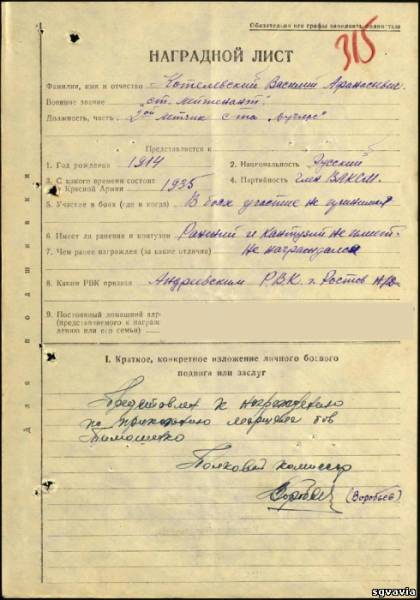 Обязательно все графы заполнять полностью
315
НАГРАДНОЙ ЛИСТ
Фамилия, имя и отчество Котелевский Василий Афанасьевич
Военное звание „ст. лейтенант"
Должность, часть 2ой летчик с-та „Дуглас"
Представляется к
1. Год рождения 1914
2. Национальность Русский
3. С какого времени состоит в Красной Армии 1935
4. Партийность член ВЛКСМ
5. Участие в боях (где и когда) В боях участие не принимал
6. Имеет ли ранения и контузии Ранений и контузий не имеет
7. Чем ранее награжден (за какие отличия) Не награждался
8. Каким РВК призван Андреевским РВК г. Ростов
9. Постоянный домашний адр
(представляемого к награж
лению или его семьи)
Для подшивки
I. Краткое, конкретное изложение личного боевого
подвига или заслуг
Представлен к награждению
по приказанию маршала тов
Тимошенко
Полковой комиссар
(Воробьев)
sgvavia